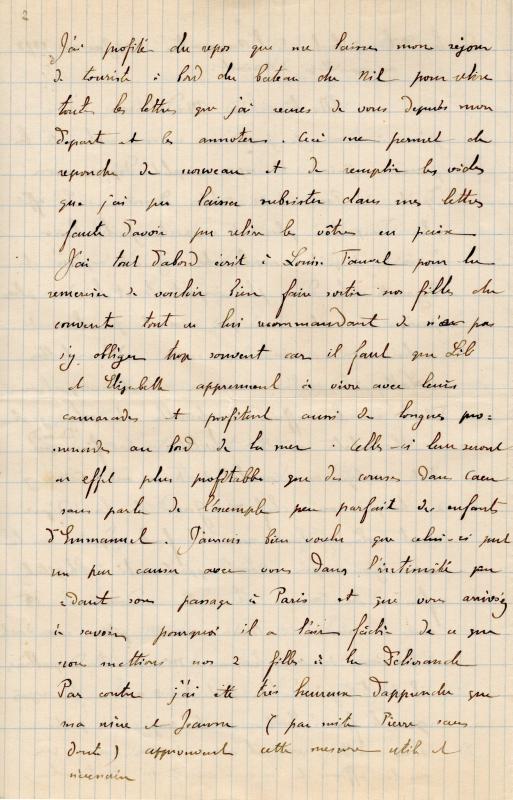 2
J'ai profité du repos que me laisse mon séjour
de touriste à bord du bateau du Nil pour relire
toutes les lettres que j'ai reçues de vous depuis mon
départ et les annoter. Ceci me permet de
répondre de nouveau et de remplir les vides
que j'ai pu laisser subsister dans mes lettres
faute d'avoir pu relire les vôtres en paix
J'ai tout d'abord écrit à Louise pour la
remercier de vouloir bien faire sortir nos filles du
couvent tout en lui recommandant de pas
s'y obliger trop souvent car il faut que Lib
et Elizabeth apprennent à vivre avec leurs
camarades et profitent aussi de longues pro=
menades au bord de la mer. Celles-ci leur seront
en effet plus profitables que des courses dans Caen
sans parler de l'exemple peu parfait des enfants
d'Emmanuel. J'aurais bien voulu que celui-ci put
un peu causer avec vous dans l'intimité pen
=dant son passage à Paris et que vous arriviez
à savoir pourquoi il a l'air fâché de ce que
nous mettions nos 2 filles à la Délivrande
Par contre j'ai été très heureux d'apprendre que
ma mère et Jeanne (par suite Pierre sans
doute) approuvent cette mesure utile et
nécessaire